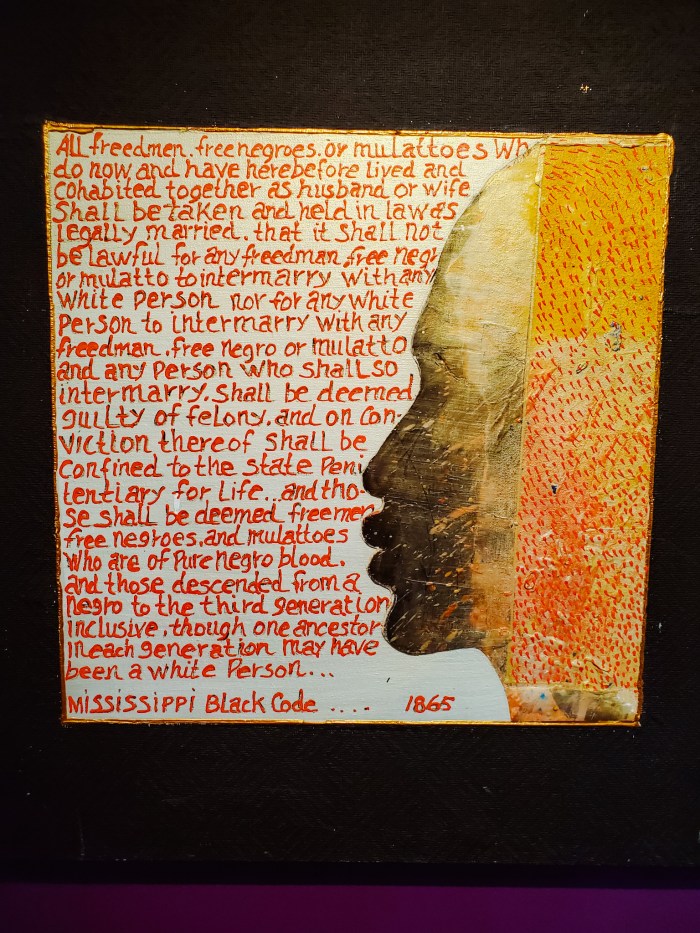 All freedmen. free negroes. or mulattoes Wh
do now and have herebefore lived and
cohabited together as husband or wife
Shall be taken and held in law as
legally married. that it shall not
be lawful for any freedman free negr
or mulatto to intermarry with any
white Person nor for any white
Person to intermarry with any
freedman. free negro or mulatto
and any Person who shall so
intermarry. Shall be deemed
guilty of felony. and on con-
viction thereof shall be
confined to the State Peni
tentiary for Life... and tho-
se shall be deemed freemen
free negroes. and mulattoes
who are of Pure negro blood.
and those descended from a
negro to the third generation
inclusive. though one ancestor
in each generation may have
been a white Person...
Mississippi Black Code .... 1865